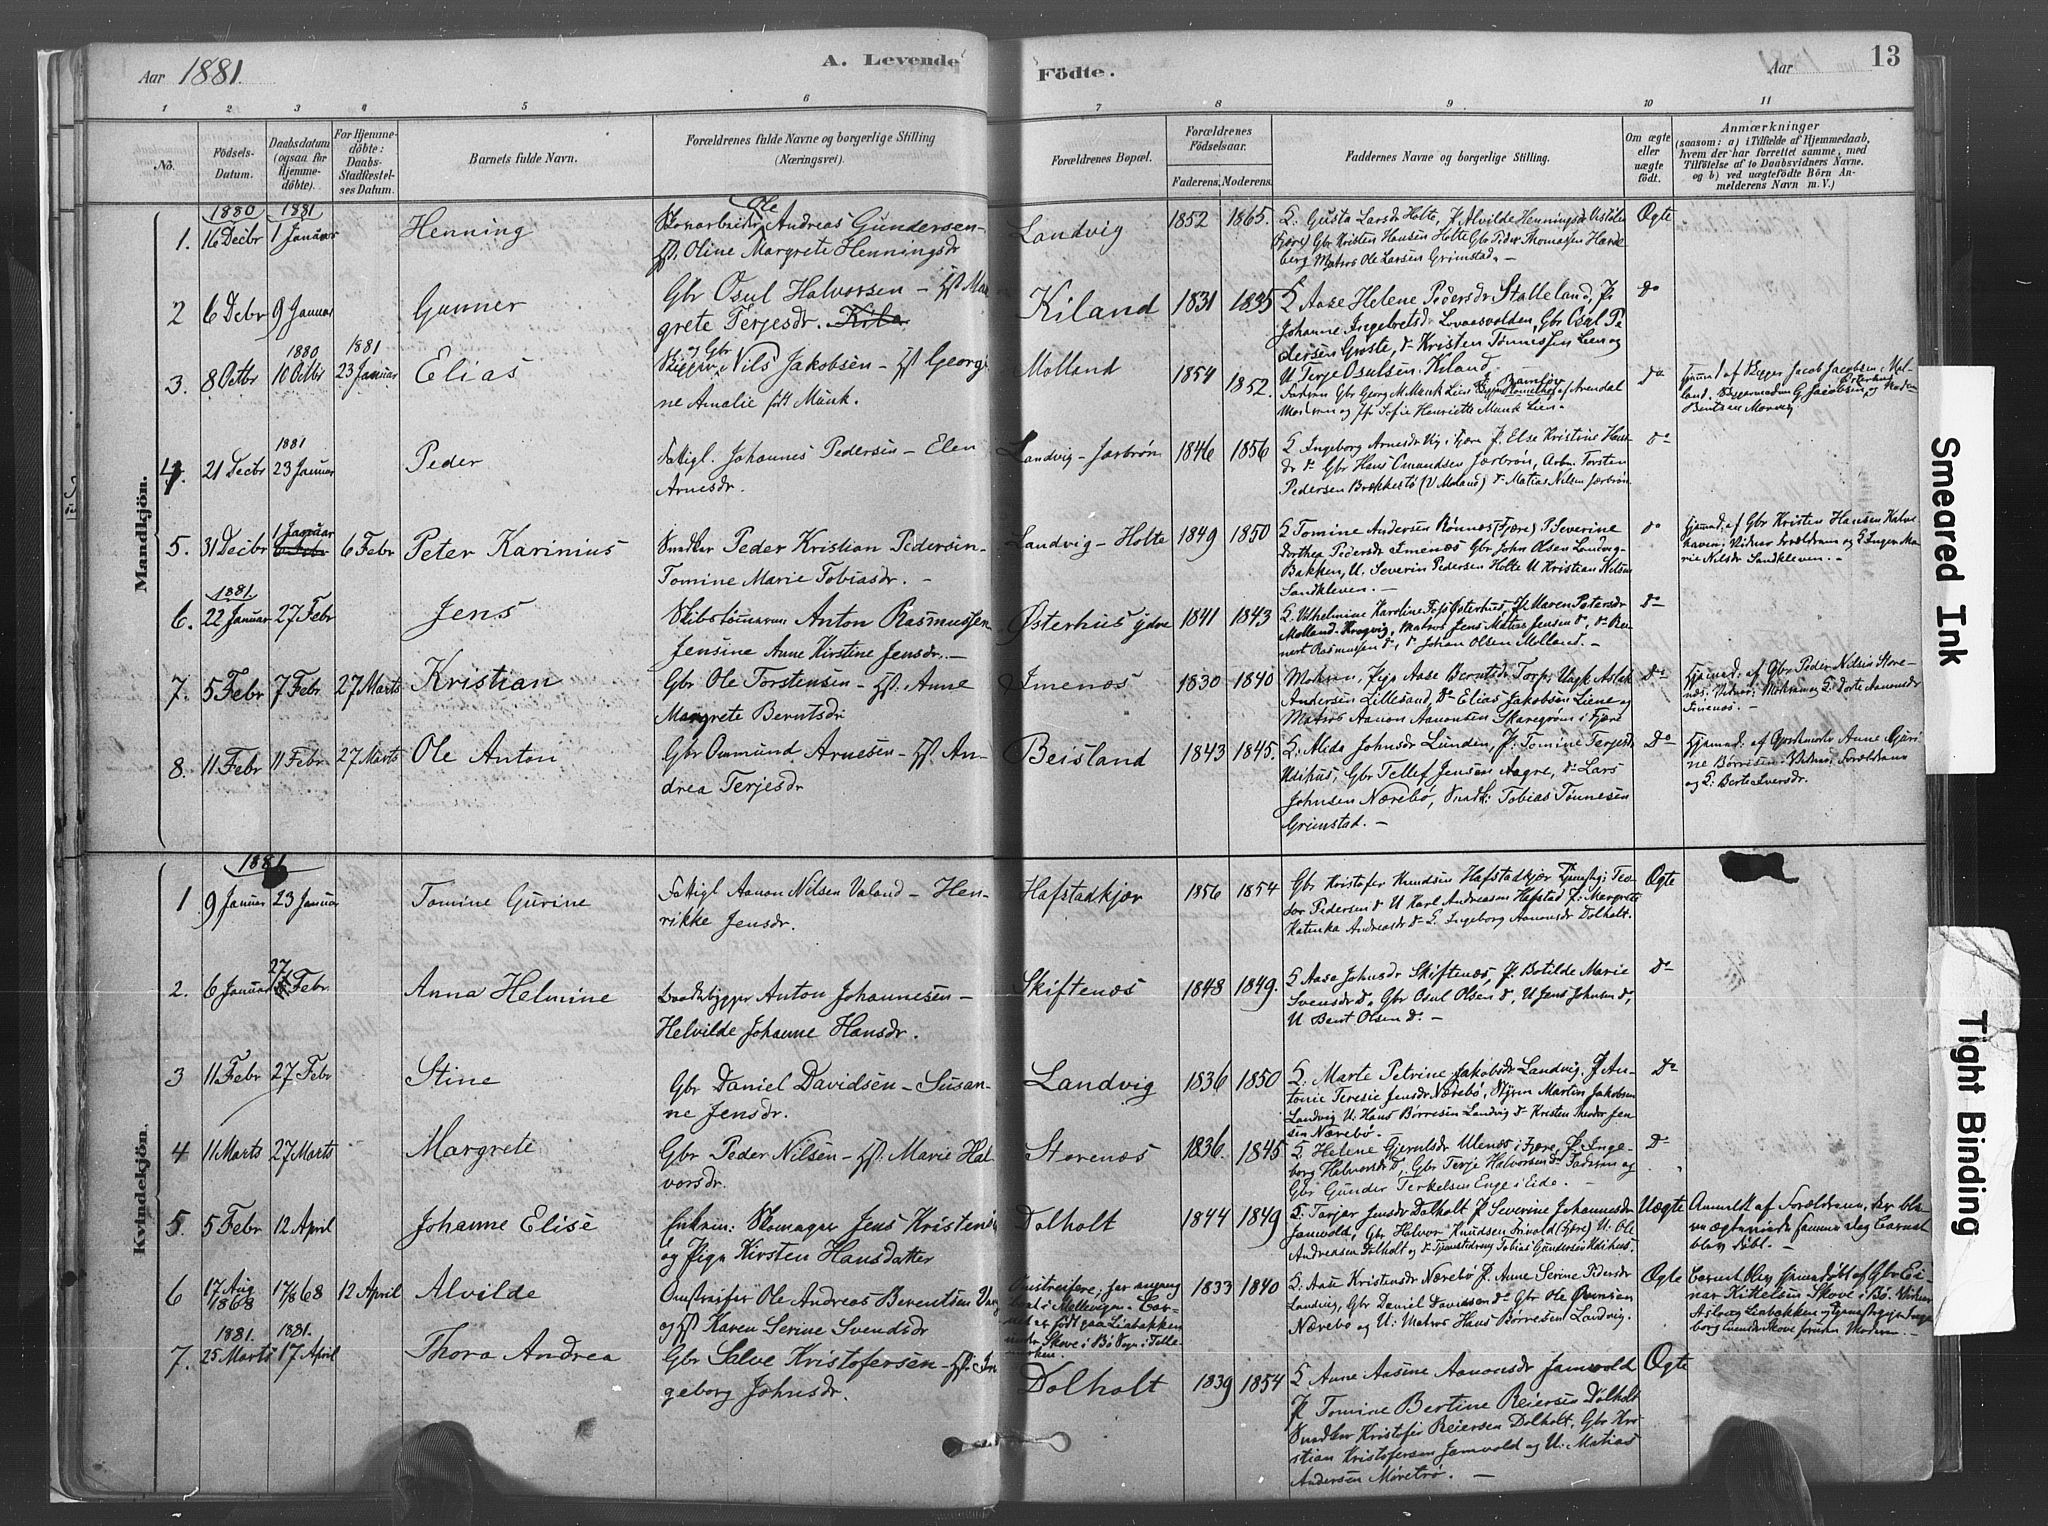 Aar 1881.
A. Levende Födte.
Aar
13
1 2 3 4 5 6 7 8 9 10 11
No.
Födsels-Datum.
Daabsdatum (ogsaa for Hjemme-döbte).
For Hjemme-döbte: Daabs-Stadfæstel-ses Datum.
Barnets fulde Navn.
Forældrenes fulde Navne og borgerlige Stilling (Næringsvei).
Forældrenes Bopæl.
Forældrenes Födselsaar.
Faderens. Moderens.
Faddernes Navne og borgerlige Stilling.
Om ægte eller uægte födt.
Anmærkninger (saasom: a) i Tilfælde af Hjemmedaab, hvem der har forrettet samme, med Tilföielse af to Daabsvidners Navne. og b) ved uægtefödte Börn Anmelderens Navn m. V.)
Mandkjön.
1880 1881
1. 16 Decbr 1 Januar Henning
Ole
Andreas Gundersen-
Hst. Oline Margrete Henningsdr
Landvig 1852 1865.
Gusta Larsdr Holte, P. Alvilde Henningsdr
(Fjære) Gbr Kristen Hansen Holte Gbr Peder Thomassen
Matros Ole Larsen Grimstad. -
Ægte
2 6 Debr 9 Januar Gunner
Gbr Osul Halvorsen - Hst Mar
grete Terjesdr.
Kiland 1831 1835
Aase Helene Pedersdr Stalleland, P.
Johanne Ingebretsd Lovaasvolden, Gbr Osul Pe
dersen Groste, do Kristen Tønnessen Lien og
U Terje Osulsen Kiland
do
1880 1881
3. 8 Octbr 10 Octbr 23 Januar Elias
og Gbr Nils Jakobsen - Hst Georgi
ne Amalie født Munk.
Molland 1854 1852.
Faderen Gbr Georg M Munk Lien
Moderen og Sofie Henriette Munk Lien.
do
1881
4. 21 Decbr 23 Januar Peder
Fattigl. Johannes Pedersen - Elen
Arnesdr.
Landvig - Jørbrøn 1846 1856
Ingeborg Arnesdr Vig i Fjære P. Else Kristine Hans
dr do Gbr Hans Omundsen Jørbrøn, Arbm Torsten
Pedersen Brækkestø (V Moland) do Matias Nilsen Jørbrøn
do
5. 31 Decbr 1 Januar 6 Febr Peter Karinius
Snedker Peder Kristian Pedersen-
Tomine Marie Tobiasdr. -
Landvig - Holte 1849 1850
Tomine Andersen Rønnes (Fjære) P. Severine
Dorthea Pedersdr Imenæs Gbr John Olsen Landvig-
Bakken, U. Severin Pedersen Holte U Kristian Nilsen
Sandkleven. -
do
Hjemmd. af Gbr Kristen Hansen Kalve
haven; Vidner Forældrene og Inger Ma
rie Nilsdr Sandkleven. -
1881.
6. 22 Januar 27 Febr Jens
Skibstømmerm Anton Rasmussen
Jensine Anne Kirstine Jensdr. -
Østerhus ydre 1841 1843
Vilhelmine Karoline Østerhus, Maren Petersdr
Molland-Krogvig, Matros Jens Matias Jensen do, do Rei
nert Rasmussen do, do Johan Olsen Molland. -
Do
7. 5 Febr 7 Febr 27 Marts Kristian
Gbr Ole Torstensen - Hst. Anne
Margrete Berntsdr
Imenæs 1830 1840
Modren, Pige Aase Berntsdr Torp, Ungk Aslak
Andersen Lillesand, do Elias Jakobsen Liene og
Matros Aanon Aanonsen Skaregrøm i Fjære
Do
Hjemmd. af Gbr Peder Nilsen Store-
næs. Vidner: Modren og Dorte Aanonsdr
Imenæs. -
8. 11 Febr 11 Febr 27 Marts Ole Anton
Gbr Ommund Arnesen - Hst. An-
drea Terjesdr
Beisland 1843 1845.
Alida Johnsdr Lunden, P. Tomine Terjesdr
Udihus, Gbr Tellef Jensen Aagre, do Lars
Johnsen Nærebø, Snedk: Tobias Tønnesen
Grimstad. -
Do
Hjemmd: af Gjordmoder Anne Gjuri
ne Børresen. Vidner, Forældrene
og Berte Iversdr.
Kvindekjön.
1881
1 9 Januar 23 Januar Tomine Gurine
Fattigl Aanon Nilsen Valand - Hen-
rikke Jensdr.
Hafstadkjær 1856 1854
Gbr Kristofer Knudsen Hafstadkjær Teo-
dor Pedersen do U Karl Andreasen Hafstad P. Margrete
Katinka Andreasdr do Ingeborg Aanonsdr Dolholt.
Ægte
2. 6 Januar 27 Febr Anna Helmine
Baadsbygger Anton Johannesen -
Helvilde Johanne Hansdr.
Skiftenæs 1848 1849.
Aase Johnsdr Skiftenæs, P. Botilde Marie
Svensdr do, Gbr Osul Olsen do, U Jens Johnsen do,
U Bent Olsen do -
Do
3 11 Febr 27 Febr Stine
Gbr Daniel Davidsen - Susan-
ne Jensdr.
Landvig 1836 1850
Marte Petrine Jakobsdr Landvig. P An-
tonie Teresie Jensdr Nærebø, Martin Jakobsen
Landvig U: Hans Børresen Landvig do Kristen Theodor Jen
sen Nærebø. -
Do
4 11 Marts 27 Marts Margrete
Gbr Peder Nilsen - Hst. Marie Hal
vorsdr.
Storenæs 1836. 1845
Helene Gjerulsdr Ulenæs i Fjære, P. Inge-
borg Halvorsdr do, Gbr Terje Halvorsen do Faderen og
Gbr Gunder Terkelsen Enge i Eide. -
Do
5. 5 Febr 12 April Johanne Elise
Enkem: Skomager Jens Kristensen
og Pige Kirsten Hansdatter
Dolholt 1844 1849
Tarjer Jensdr Dolholt P. Severine Johannesdr
Jamvold, Gbr Halvor Knudsen (Fjære) U: Ole
Andreasen Dolholt og Tobias Gundersen Udihus.
Uægte
Anmeldt af Forældrene, der ble
ve ægteviede samme dag Barnet
blev døbt. -
6 17 Aug 1868 17/8 68 12 April Alvilde
Omstreifer Ole Andreas Berentsen
og Hst Karen Serine Svendsdr
Omstreifere, for
i Mollevigen. Bar-
net er født paa Liabakken
under Skove i Bø Sogn i Telle
marken.
1833 1840
Aase Kristensdr Nærebø P. Anne Serine Pedersdr
Landvig, Gbr Daniel Davidsen do Gbr Ole
Nærebø og U: Matros Hans Børresen Landvig.
Ægte
Barnet blev hjemmedøbt af Gbr Ei-
nar Kittelsen Skove i Bø. Vidner
Aslaug Liabakken og
foruden Modren. -
1881. 1881.
7. 25 Marts 17 April Thora Andrea
Gbr Salve Kristofersen - Hst. In
geborg Johnsdr.
Dolholt 1839 1854
Anne Aasine Aanonsdr Jamvold
P. Tomine Bertine Reiersen Dolholt
Snedker Kristofer Reiersen Dolholt, Gbr Kri
stian Kristofersen Jamvold og U: Matias
Andersen Møretrø. -
Ægte
Smeared Ink
Tight Binding